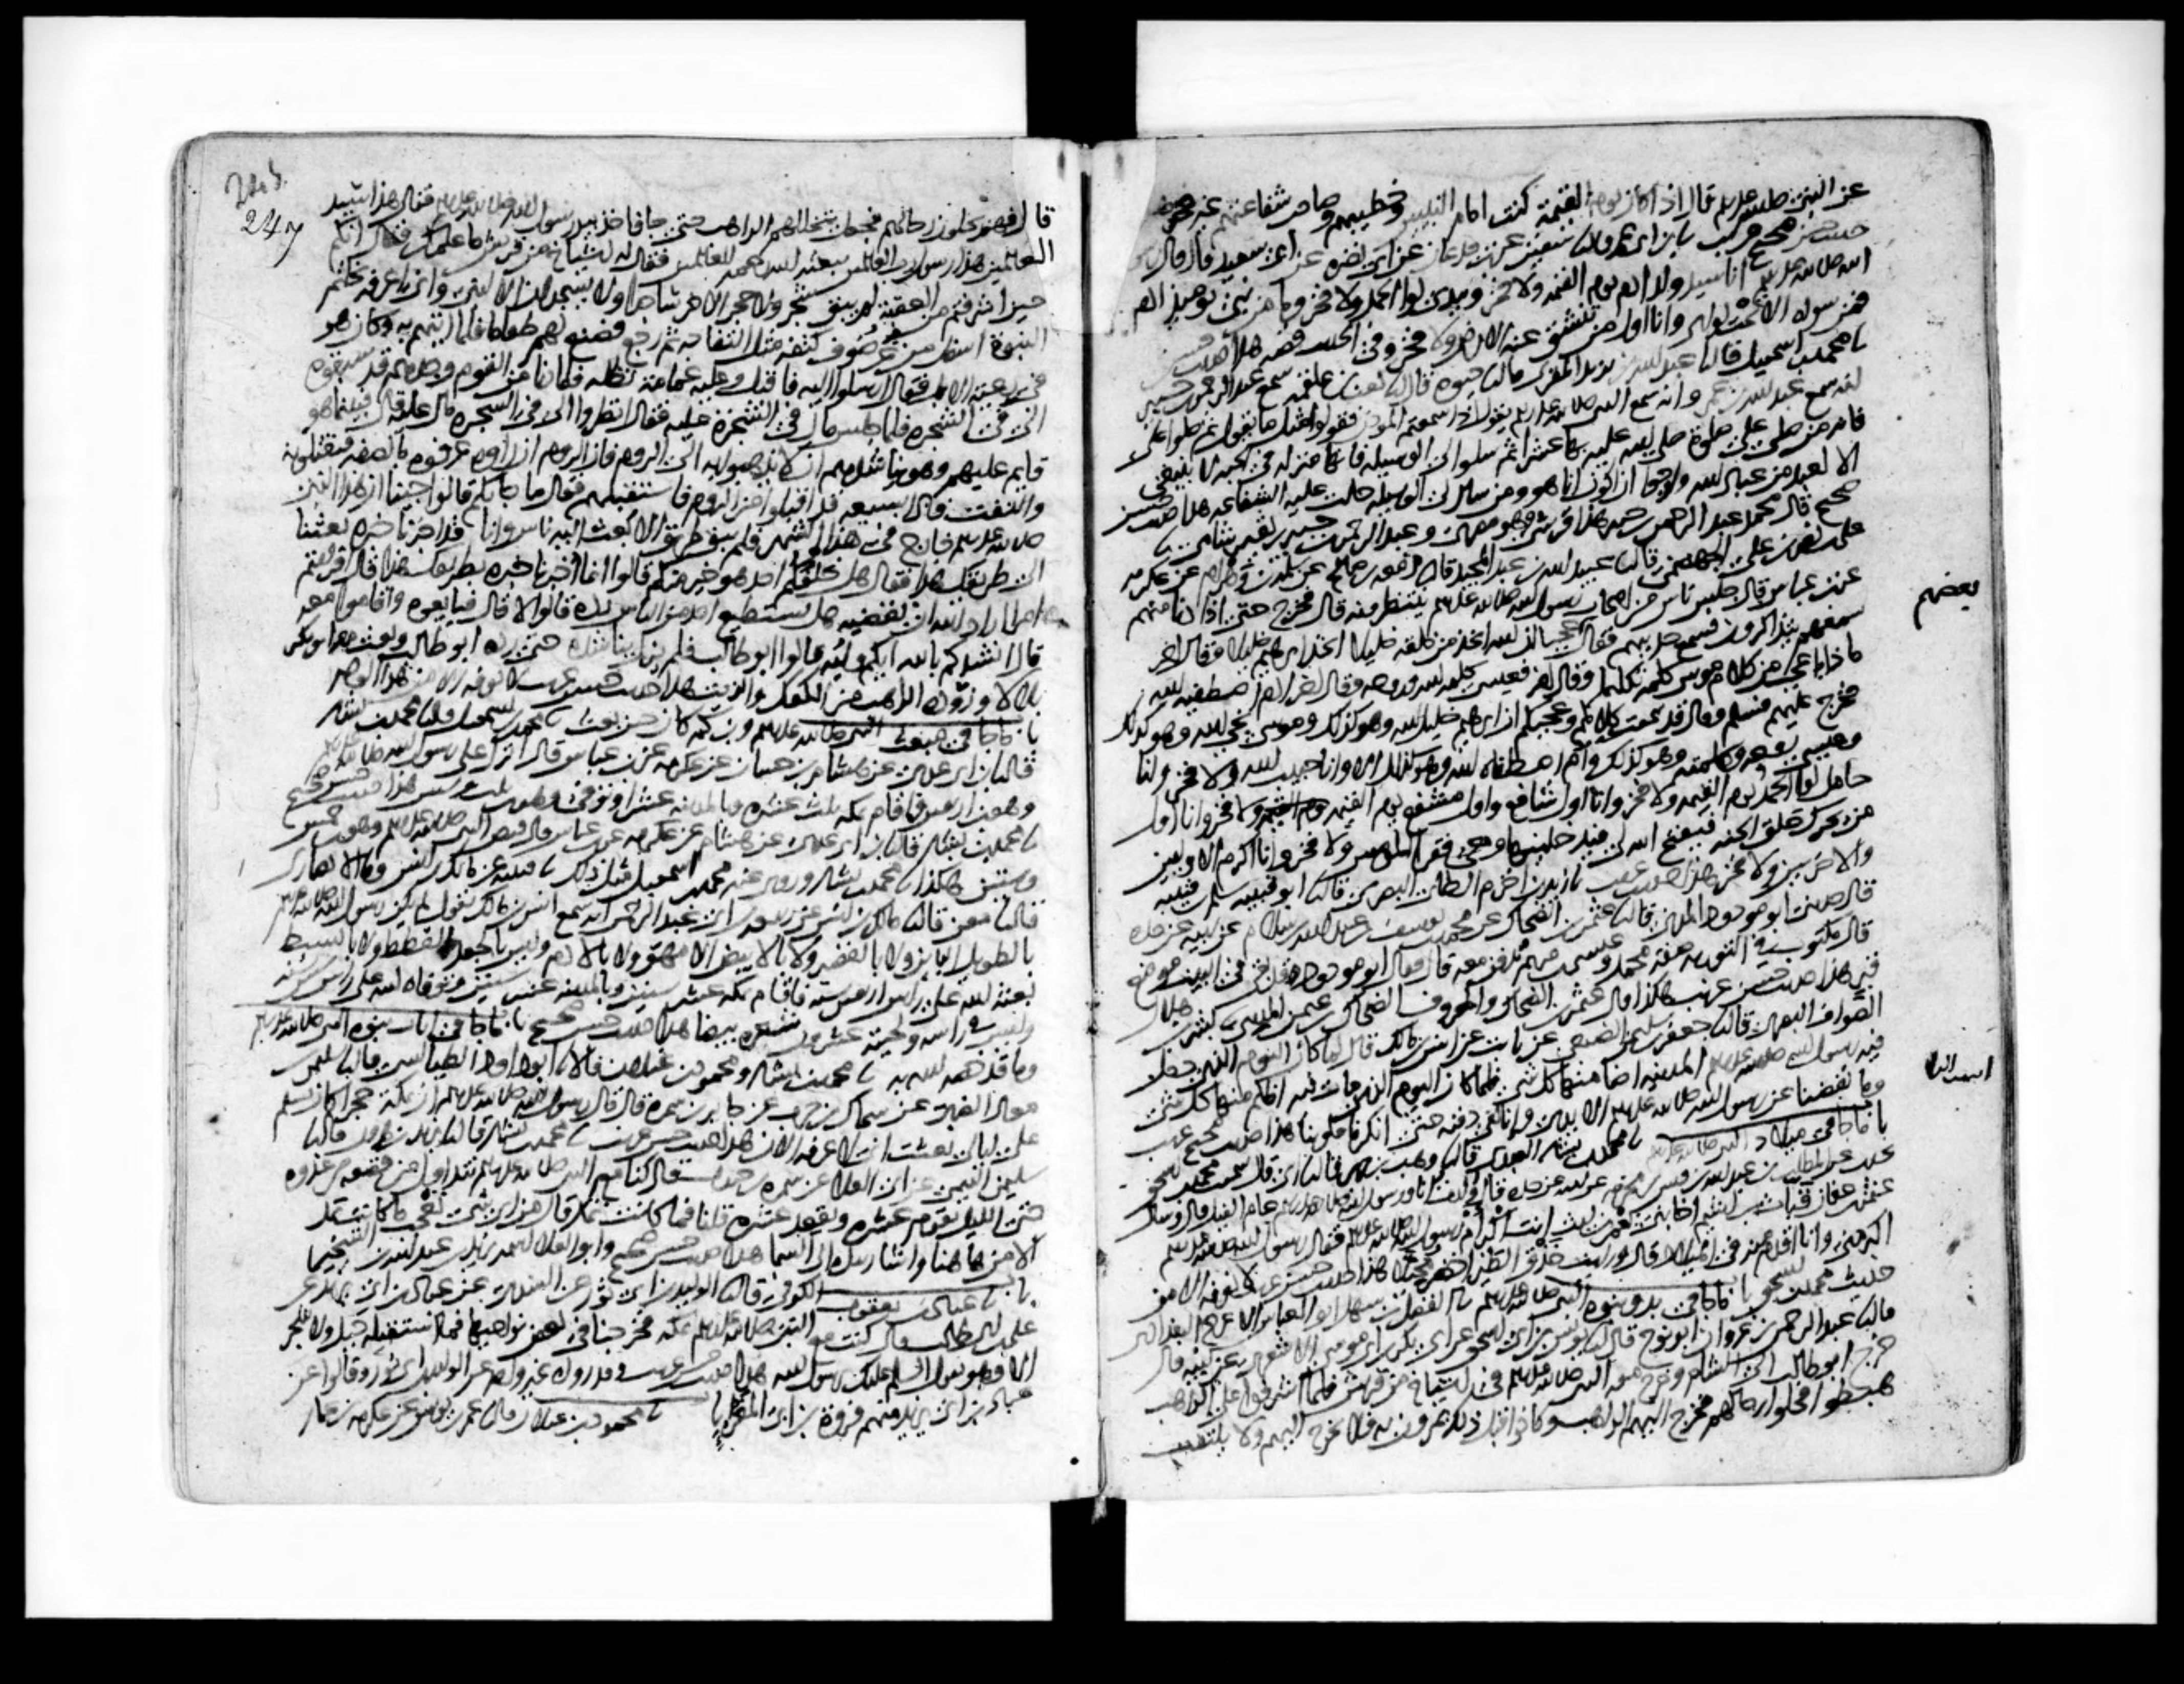 عن النبى صلى الله عليه وسلم قال اذا كان يوم القيمة كنت امام النبيين وخطيبهم وصاحب شفاعتهم غير فخر هذا
حديث حسن صحيح غريب نا ابن ابى عمر قال نا سفين عن بن جدعان عن ابى نضرة عن ابى سعيد قال قال رسول
الله صلى الله عليه وسلم انا سيد ولد ادم يوم القيمة ولا فخر وبيدى لوا الحمد ولا فخر وما من نبى يومئذ ادم
فمن سواه الا تحت لوائى وانا اول من تنشق عنه الارض ولا فخر وفى الحديث قصة هذا حديث حسن
نا محمد بن اسمعيل قال نا عبد الله بن يزيد المقرى قال نا حيوة قال نا كعب بن علقمة سمع عبد الرحمن بن جبير
انه سمع عبد الله بن عمرو انه سمع النبى صلى الله عليه وسلم يقول اذا سمعتم المؤذن فقولوا مثل ما يقول ثم صلوا على
فانه من صلى على صلوة صلى الله عليه بها عشرا ثم سلوا لى الوسيلة فانها منزلة فى الجنة لا تنبغى
الا لعبد من عباد الله وارجوا ان اكون انا هو ومن سال لى الوسيلة حلت عليه الشفاعة هذا حديث حسن
صحيح قال محمد عبد الرحمن بن جبير هذا قرشى وهو مصرى وعبد الرحمن بن جبير بن نفير شامى نا
على بن نصر بن على الجهضمى قال نا عبيد الله بن عبد المجيد قال نا زمعة بن صالح عن سلمة بن وهرام عن عكرمة
عن بن عباس قال جلس ناس من اصحاب رسول الله صلى الله عليه وسلم ينتظرونه قال فخرج حتى اذا دنا منهم
سمعهم يتذاكرون فسمع حديثهم فقال بعضهم عجبا ان الله اتخذ من خلقه خليلا اتخذ ابرهيم خليلا وقال اخر
ماذا باعجب من كلام موسى كلمه تكليما وقال اخر فعيسى كلمة الله وروحه وقال اخر ادم اصطفاه الله
فخرج عليهم فسلم وقال قد سمعت كلامكم وعجبكم ان ابرهيم خليل الله وهو كذلك وموسى نجى الله وهو كذلك
وعيسى روحه وكلمته وهو كذلك وادم اصطفاه الله وهو كذلك الا وانا حبيب الله ولا فخر وانا
حامل لوا الحمد يوم القيمة ولا فخر وانا اول شافع واول مشفع يوم القيمة ولا فخر وانا اول
من يحرك حلق الجنة فيفتح الله لى فيدخلنيها ومعى فقرا المومنين ولا فخر وانا اكرم الاولين
والاخرين ولا فخر هذا حديث غريب نا زيد بن اخزم الطائى البصرى قال نا ابو قتيبة سلم بن قتيبة
قال حدثنى ابو مودود المدنى قال نا عثمن بن الضحاك عن محمد بن يوسف بن عبد الله بن سلام عن ابيه عن جده
قال مكتوب فى التورية صفة محمد وعيسى بن مريم يدفن معه قال فقال ابو مودود قد بقى فى البيت موضع
قبر هذا حديث حسن غريب هكذا قال عثمن بن الضحاك والمعروف الضحاك بن عثمن المدينى نا بشر بن هلال
الصواف البصرى قال نا جعفر بن سليمن الضبعى عن ثابت عن انس بن مالك قال لما كان اليوم الذى دخل
فيه رسول الله صلى الله عليه وسلم المدينة اضا منها كل شى فلما كان اليوم الذى مات فيه اظلم منها كل شى
وما نفضنا عن رسول الله صلى الله عليه وسلم الايدى وانا لفى دفنه حتى انكرنا قلوبنا هذا حديث صحيح غريب
باب ما جا فى ميلاد النبى صلى الله عليه وسلم نا محمد بن بشار العبدى قال نا وهب بن جرير قال نا ابى قال سمعت محمد بن اسحق
يحدث عن المطلب بن عبد الله بن قيس بن مخرمة عن ابيه عن جده قال ولدت انا ورسول الله صلى الله عليه وسلم عام الفيل قال وسال
عثمن بن عفان قباث بن اشيم اخا بنى يعمر بن ليث انت اكبر ام رسول الله صلى الله عليه وسلم فقال رسول الله صلى الله عليه وسلم
اكبر منى وانا اقدم منه فى الميلاد قال ورايت خذق الطير اخضر محيلا هذا حديث حسن غريب لا نعرفه الا من
حديث محمد بن اسحق باب ما جا فى بدو نبوة النبى صلى الله عليه وسلم نا الفضل بن سهل ابو العباس الاعرج البغدادى
قال نا عبد الرحمن بن غزوان ابو نوح قال نا يونس بن ابى اسحق عن ابى بكر بن ابى موسى الاشعرى عن ابيه قال
خرج ابو طالب الى الشام وخرج معه النبى صلى الله عليه وسلم فى اشياخ من قريش فلما اشرفوا على الراهب
هبطوا فحلوا رحالهم فخرج اليهم الراهب وكانوا قبل ذلك يمرون به فلا يخرج اليهم ولا يلتفت
بعضهم
247
قال فهم يحلون رحالهم فجعل يتخللهم الراهب حتى جا فاخذ بيد رسول الله صلى الله عليه وسلم فقال هذا سيد
العالمين هذا رسول رب العالمين يبعثه الله رحمة للعالمين فقال له اشياخ من قريش ما علمك فقال انكم
حين اشرفتم من العقبة لم يبق شجر ولا حجر الا خر ساجدا ولا يسجدان الا لنبى وانى اعرفه بخاتم
النبوة اسفل من غضروف كتفه مثل التفاحة ثم رجع فصنع لهم طعاما فلما اتاهم به وكان هو
فى رعية الابل فقال ارسلوا اليه فاقبل وعليه غمامة تظله فلما دنا من القوم وجدهم قد سبقوه
الى فى الشجرة فلما جلس مال فى الشجرة عليه فقال انظروا الى فى الشجرة مال عليه قال فبينما هو
قايم عليهم وهو يناشدهم ان لا يذهبوا به الى الروم فان الروم ان راوه عرفوه بالصفة فيقتلونه
والتفت فاذا بسبعة قد اقبلوا من الروم فاستقبلهم فقال ما جا بكم قالوا جينا ان هذا النبى
صلى الله عليه وسلم خارج فى هذا الشهر فلم يبق طريق الا بعث اليه ناس وانا قد اخبرنا خبره بعثنا
الى طريقك هذا فقال هل خلفكم احد هو خير منكم قالوا انما اخبرنا خبره بطريقك هذا قال افرايتم
امرا اراد الله ان يقضيه هل يستطيع احد من الناس رده قالوا لا قال فبايعوه واقاموا معه
قال انشدكم بالله ايكم وليه قالوا ابو طالب فلم يزل يناشده حتى رده ابو طالب وبعث معه ابو بكر
بلالا وزوده الراهب من الكعك والزيت هذا حديث حسن غريب لا نعرفه الا من هذا الوجه
باب ما جا فى مبعث النبى صلى الله عليه وسلم وبن كم كان حين بعث نا محمد بن اسمعيل قال نا محمد بن بشار
قال نا بن ابى عدى عن هشام بن حسان عن عكرمة عن بن عباس قال انزل على رسول الله صلى الله عليه وسلم
وهو بن اربعين فاقام بمكة ثلث عشرة وبالمدينة عشرا وتوفى وهو بن ثلث وستين هذا حديث حسن صحيح
نا محمد بن بشار قال نا بن ابى عدى عن هشام عن عكرمة عن بن عباس قال قبض النبى صلى الله عليه وسلم وهو بن خمس
وستين هكذا نا محمد بن بشار وروى عنه محمد بن اسمعيل مثل ذلك نا قتيبة عن مالك بن انس ونا الانصارى
قال نا معن قال نا مالك بن انس عن ربيعة بن ابى عبد الرحمن انه سمع انس بن مالك يقول لم يكن رسول الله صلى الله عليه وسلم
بالطويل البائن ولا بالقصير ولا بالابيض الامهق ولا بالادم وليس بالجعد القطط ولا بالسبط
بعثه الله على راس اربعين سنة فاقام بمكة عشر سنين وبالمدينة عشر سنين وتوفاه الله على راس ستين سنة
وليس فى راسه ولحيته عشرون شعرة بيضا هذا حديث حسن صحيح باب ما جا فى ايات نبوة النبى صلى الله عليه وسلم
وما قد خصه الله به نا محمد بن بشار ومحمود بن غيلان قالا نا ابو داود الطيالسى قال نا سليمن
بن معاذ الضبى عن سماك بن حرب عن جابر بن سمرة قال قال رسول الله صلى الله عليه وسلم ان بمكة حجرا كان يسلم
على ليالى بعثت انى لاعرفه الان هذا حديث حسن غريب نا محمد بن بشار قال نا يزيد بن هارون قال نا
سليمن التيمى عن ابى العلا عن سمرة بن جندب قال كنا مع النبى صلى الله عليه وسلم نتداول من قصعة من غدوة
حتى الليل يقوم عشرة ويقعد عشرة قلنا فما كانت تمد قال من اى شى تعجب ما كانت تمد
الا من هاهنا واشار بيده الى السما هذا حديث حسن صحيح وابو العلا اسمه يزيد بن عبد الله بن الشخير
باب نا عباد بن يعقوب الكوفى قال نا الوليد بن ابى ثور عن السدى عن عباد بن ابى يزيد عن
على بن ابى طالب قال كنت مع النبى صلى الله عليه وسلم بمكة فخرجنا فى بعض نواحيها فما استقبله جبل ولا شجر
الا وهو يقول السلام عليك يرسول الله هذا حديث حسن غريب وقد رواه غير واحد عن الوليد بن ابى ثور وقالوا عن
عباد بن ابى يزيد منهم فروة بن ابى المغرا نا محمود بن غيلان قال نا عمر بن يونس عن عكرمة بن عمار